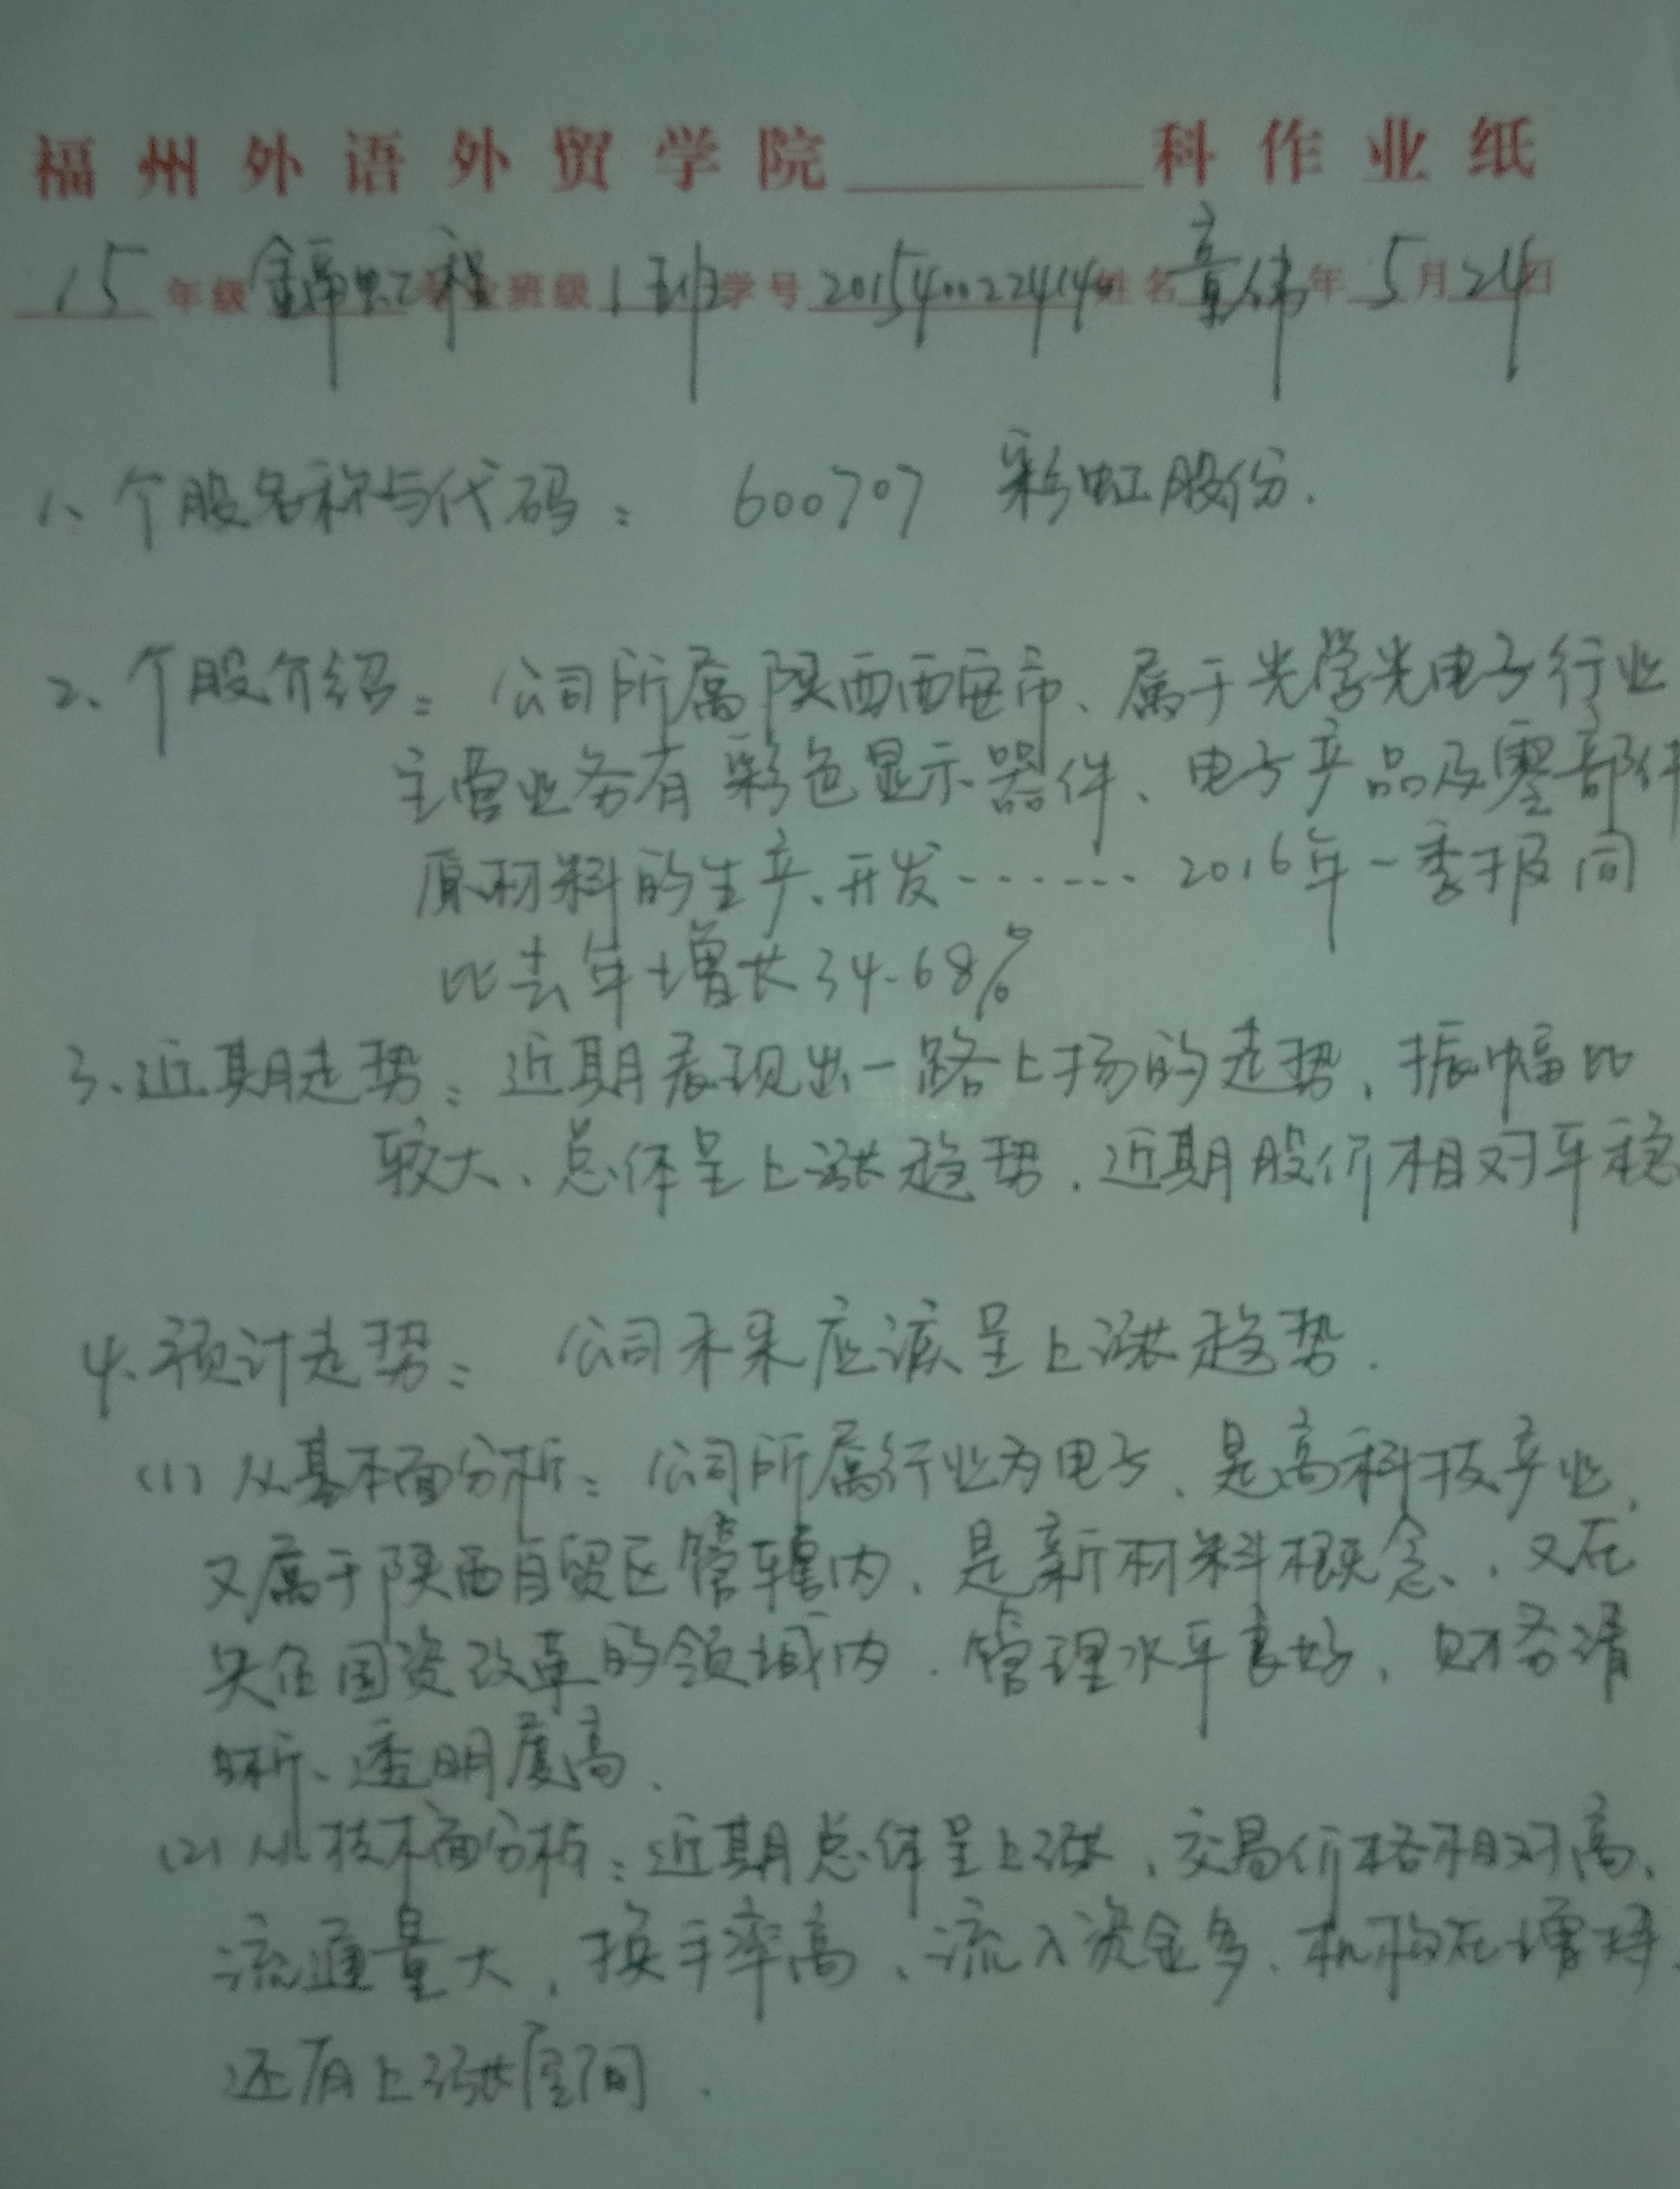 福州外语外贸学院 科作业纸
15 年级 金融工程 专业班级 1班 学号 2015400224144 姓名 章伟 年 5 月 24 日
1、个股名称与代码： 600707 彩虹股份.
2、个股介绍： 公司所属陕西西安市、属于光学光电子行业
主营业务有彩色显示器件、电子产品及零部件
原材料的生产、开发……… 2016年一季报同
比去年增长34.68%
3、近期走势：近期表现出一路上扬的走势，振幅比
较大、总体呈上涨趋势. 近期股价相对平稳
4、预计走势： 公司未来应该呈上涨趋势.
(1) 从基本面分析：公司所属行业为电子、是高科技产业，
又属于陕西自贸区管辖内，是新材料概念，又在
央企国资改革的领域内. 管理水平良好，财务清
晰、透明度高.
(2) 从技术面分析：近期总体呈上涨，交易价格相对高，
流通量大，换手率高、流入资金多、机构在增持，
还有上涨空间.